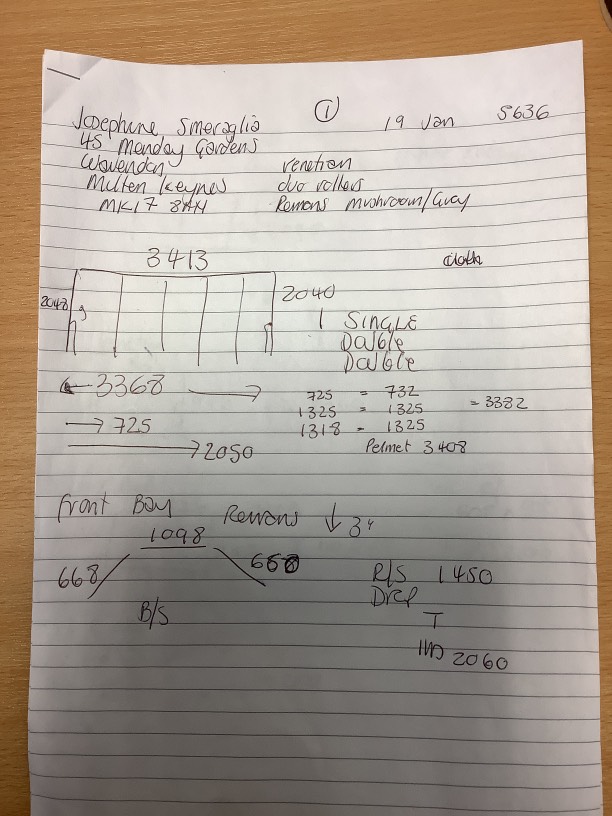 ① 19 Jan 5636
Josephine Smeraglia
45 Manday Gardens
Wavendon venetian
Multen Keynes duo rollers
MK17 8AH Remans mushroom/Grey
3413
2048 2040
1 SINGLE
Double
Double
3368 725 = 732
1325 = 1325 = 3382
725 1318 = 1325
2050 Pelmet 3408
Front Bay Remans ↓ 34
1098
668 668
R/S 1450
B/S Drop
T
2060